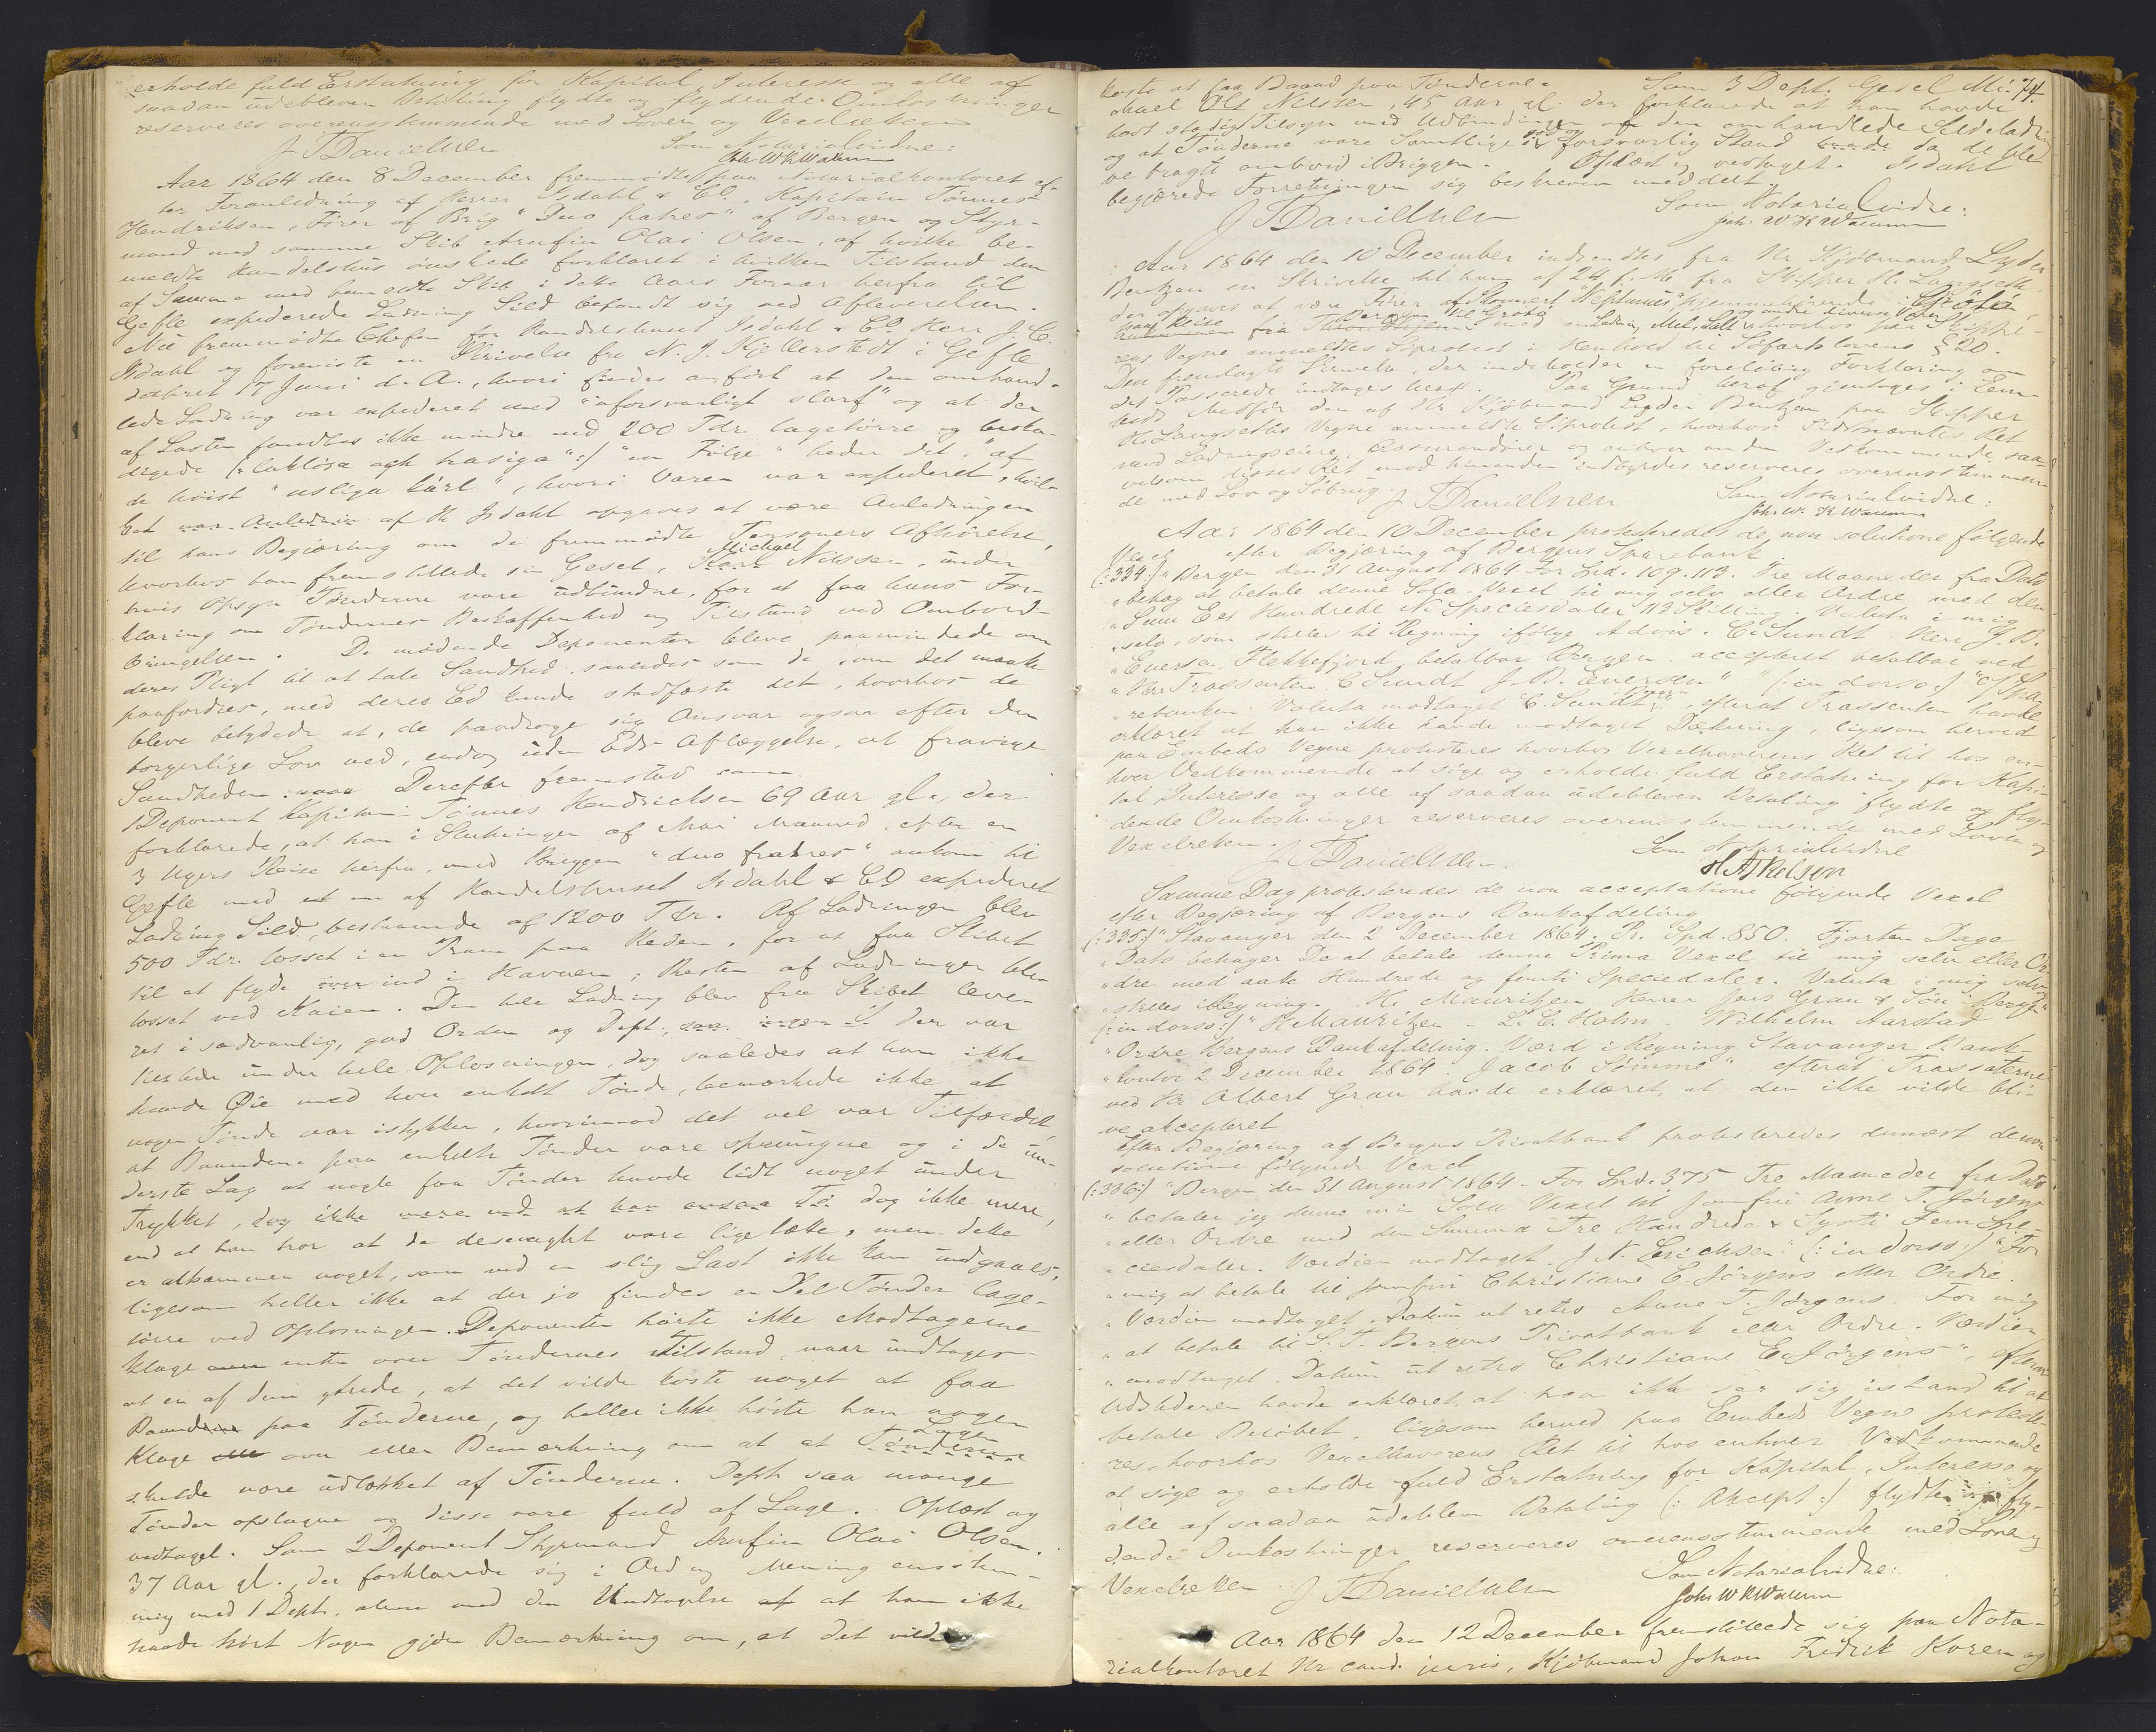 erholde fuld Erstatning for Kapital Interesse og alle af
saadan udebleven Betaling flydte og flydende Omkostninger
reserveres overensstemmende med Loven og Vexelretten
J. Danielsen Som Notarialvidne:
Joh. W K Wallum
Aar 1864 den 8 December fremmødte paa Notarialkontoret ef-
ter Foranledning af Herrer Isdahl & Co. Kapitain Tønnes
Hendriksen, Fører af Brig "Duo fratres" af Bergen og Styr-
mand med samme Skib Arnfin Olai Olsen, af hvilke be-
meldte Handelshus ønskede forklaret i hvilken Tilstand den
af Samme med bemeldte Skib i dette Aars Foraar herfra til
Gefle expederede Ladning Sild befandt sig ved Afleverelsen.
Nu fremmødte Chefen for Handelshuset Isdahl & Co Herr J. C.
Isdahl og foreviste en Skrivelse fra N. J. Kjellerstedt i Gefle
dateret 17 Juni d. A., hvori findes anført at den omhand-
lede Ladning var expederet med "oforsvarligt slarf" og at der
af Lasten fandtes ikke mindre end 200 Tdr. lagetørre og beska-
digede (: laklösa och trasiga :) "en Følge" heder det "af
de høist "usliga kärl", hvori Varen var expederet, hvil-
ket var Anlednin af Hr Isdahl opgaves at være Anledningen
til hans Begjæring om de fremmødte Personers Afhørelse,
hvorhos han fremstillede sin Gesel, Karl Michael Nilssen, under
hvis Opsyn Tønderne vare udbundne, for at faa hans For-
klaring om Tøndernes Beskaffenhed og Tilstand ved Ombord-
bringelsen. De mødende Deponenter bleve paamindede om
deres Pligt til at tale Sandhed saaledes som de, om det maatte
paafordres, med deres Ed kunde stadfæste det, hvorhos de
bleve betydede at, de paadroge sig Ansvar ogsaa efter den
borgerlige Lov ved, endog uden Eds Aflæggelse, at fravige
Sandheden. Derefter fremstod som
1 Deponent Kapitain Tønnes Hendricksen 69 Aar gl., der
forklarede, at han i Slutningen af Mai Maaned, efter en
3 Ugers Reise herfra, med Briggen "duo fratres" ankom til
Gefle med en af Handelshuset Isdahl & Co expederet
Ladning Sild, bestaaende af 1200 Tdr. Af Ladningen blev
500 Tdr. losset i en Pram paa Reden, for at faa Skibet
til at flyde over ind i Havnen; Resten af Ladningen blev
losset ved Kaien. Den hele Ladning blev fra Skibet leve-
ret i sædvanlig, god Orden og Dept. der var
tilstede under hele Oplosningen, dog saaledes at han ikke
havde Øie med hver enkelt Tønde, bemærkede ikke at
nogen Tønde var istykker, hvorimod det vel var Tilfældet
at Baandene paa enkelte Tønder vare sprungne og i de un-
derste Lag at nogle faa Tønder havde lidt noget under
Trykket, dog ikke mere end at han ansaa dog ikke mere,
end at han tror at de desuagtet vare lige tætte, men dette
er altsammen noget, som ved en slig Last ikke kan undgaaes,
ligesom heller ikke at der jo findes en Del Tønder lage-
tørre ved Oplosningen. Deponenten hørte ikke Modtagerne
klage enten over Tøndernes Tilstand, naar undtages
at en af dem ytrede, at det vilde koste noget at faa
Baand paa Tønderne, og heller ikke hørte han nogen
Klage over eller Bemærkning om at at Tønderne Lagen
skulde være udlækket af Tønderne. Depts. saa mange
Tønder opslagne og disse vare fuld af Lage. Oplæst og
vedtaget. Som 2 Deponent Styrmand Arnfin Olai Olsen,
37 Aar gl., der forklarede sig i Ord og Mening enstem-
mig med 1 Dept., alene med den Undtagelse af at han ikke
havde hørt Nogen gjøre Bemærkning om, at det vilde
koste at faa Baand paa Tønderne. Som 3 Dept. Gesel Mi- 74.
chael Nilssen, 45 Aar gl. der forklarede at han havde
havt stadigt Tilsyn med Udbindingen af den omhandlede Sildeladning
og at Tønderne vare Samtlige i god og forsvarlig Stand da de ble-
ve bragt ombord i Briggen. Oplæst og vedtaget. Isdahl
begjærede Forretningen sig beskreven meddelt.
J. Danielsen Som Notarialvidne:
Joh. W K Wallum
Aar 1864 den 10 December indsendtes fra Hr. Kjøbmand Lyder
Bentzon en Skrivelse til ham af 24 f. M. fra Skipper H. Langseth
der opgaves at være Fører af Skonnert "Neptunus" hjemmehørende i Grotø,
paa Reise fra Bergen til Grotø med en Ladning Mel, Salt og andre diverse Varer hvorhos paa Skippe-
rens Vegne anmeldtes Søprotest i Henhold til Søfartslovens § 20.
Den fremlagte Skrivelse, der indeholder en foreløbig Forklaring om
det Passerede indtages her. Paa Grund heraf gjentages i Em-
beds Medfør den af Hr Kjøbmand Lyder Bentzon paa Skipper
H. Langseths Vegne anmeldte Søprotest, hvorhos Sidstnævntes Ret
mod Ladningseiere, Assurandører og enhver anden Vedkommende saa-
velsom disses Ret mod hinanden indbyrdes reserveres overensstemmen-
de med Lov og Søbrug. J. Danielsen Som Notarialvidne:
Joh. W. K Wallum
Aar 1864 den 10 December protesteredes de non solutione følgende
Vexel efter Begjæring af Bergens Sparebank
(: 334 :) "Bergen den 31 August 1864 For Spd. 109. 113. Tre Maaneder fra Dato
"behag at betale denne Sola Vexel til mig selv eller Ordre med den
"Sum Eet Hundrede Ni Speciesdaler 113 Skilling. Valuta i mig
"selv, som stilles til Regning ifølge Advis. C. Sundt Herr J. B.
"Eversen, Flekkefjord, betalbar Bergen. accepteret betalbar ved
"Hr. Trassenten C Sundt J. B. Eversen" (: in dorso :) "Spa-
"rebanken. Valuta modtaget C. Sundt", efterat Trassenten havde
erklæret at han ikke havde modtaget Dækning, ligesom herved
paa Embeds Vegne protesteres hvorhos Vexelhaverens Ret til hos en-
hver Vedkommende at søge og erholde fuld Erstatning for Kapi-
tal Interesse og alle af saadan udebleven Betaling flydte og fly-
dende Omkostninger reserveres overensstemmende med Loven og
Vexelretten.
J. Danielsen. Som Notarialvidne
Samme Dag protesteredes de non acceptatione følgende Vexel
efter Begjæring af Bergens Bankafdeling
(: 335 :) "Stavanger den 2 December 1864. Pr. Spd. 850. Fjorten Dage
"Dato behager De at betale denne Prima Vexel til mig selv eller Or-
"dre med aate Hundrede og femti Speciedaler. Valuta i mig selv og
"stilles i Regning. H. Mauritzen Herrer Jens Gran & Søn Bergen"
(: in dorso :) "H Mauritzen - L. C. Holm - Wilhelm Aarstad
"Ordre Bergens Bankafdeling. Værd i Regning Stavanger Bank-
"kontor 2 December 1864. Jacob Sømme" efterat Trassaterne
ved Hr. Albert Gran havde erklæret, at den ikke vilde bli-
ve akcepteret
Efter Begjæring af Bergens Privatbank protesteredes dernæst de non
solutione følgende Vexel
(: 336 :) "Bergen den 31 August 1864 - For Spd. 375 Tre Maaneder fra Dato
"betaler jeg denne min Sola Vexel til Jomfru Anne T. Jørgens
"eller Ordre med den Summa Tre Hundrede & Sytti Fem Spe-
"ciesdaler. Værdien modtaget. J. N. Erichsen" (: in dorso :) "For
"mig at betale til Jomfru Christiane E. Jørgens eller Ordre.
"Værdien modtaget. Datum ut retro Anne T. Jørgens. For mig
"at betale til S. T. Bergens Privatbank eller Ordre. Værdien
"modtaget. Datum ut retro Christiane E. Jørgens", efterat
Udstederen havde erklæret, at han ikke saa sig istand til at
betale Beløbet, ligesom herved paa Embeds Vegne proteste-
res, hvorhos Vexelhaverens Ret til hos enhver Vedkommende
at søge og erholde fuld Erstatning for Kapital, Interesse og
alle af saadan udebleven Betaling (: Akcept :) flydte og fly-
dende Omkostninger reserveres overensstemmende med Loven og
Vexelretten J. Danielsen Som Notarialvidne:
Joh W K Wallum
Aar 1864 den 12 December fremstillede sig paa Nota-
rialkontoret Hr cand. juris, Kjøbmand Johan Fredrik Koren og